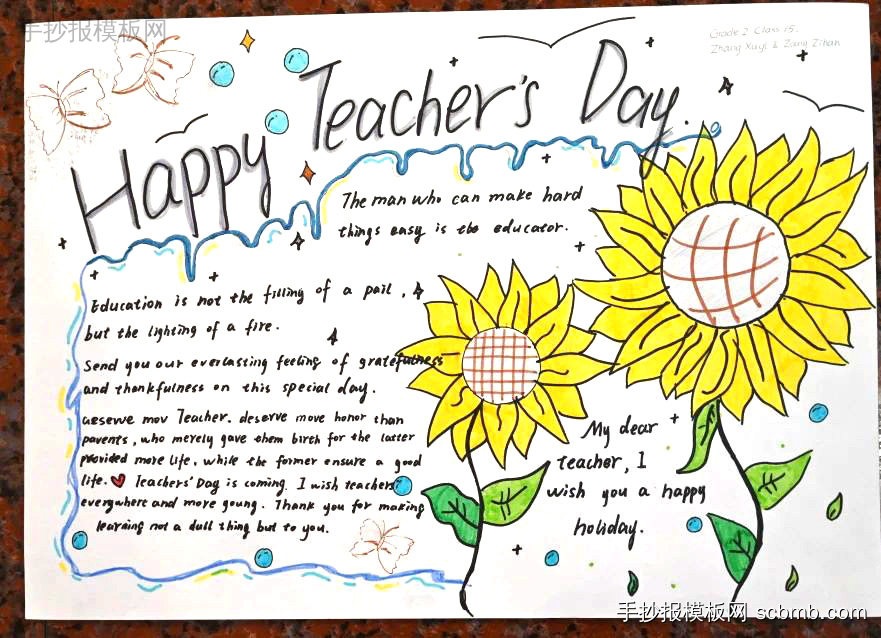 手抄报模板网
Grade 2 Class 15.
Zhang Xuyi & Zong Zihan
Happy Teacher's Day.
The man who can make hard
things easy is the educator.
Education is not the filling of a pail,
but the lighting of a fire.
Send you our everlasting feeling of gratefulness
and thankfulness on this special day.
deserve mov Teacher. deserve move honor than
parents, who merely gave them birth for the latter
provided more life, while the former ensure a good
life. Teachers' Day is coming. I wish teachers
everywhere and more young. Thank you for making
learning not a dull thing but to you.
My dear
teacher, I
wish you a happy
holiday.
手抄报模板网 scbmb.com